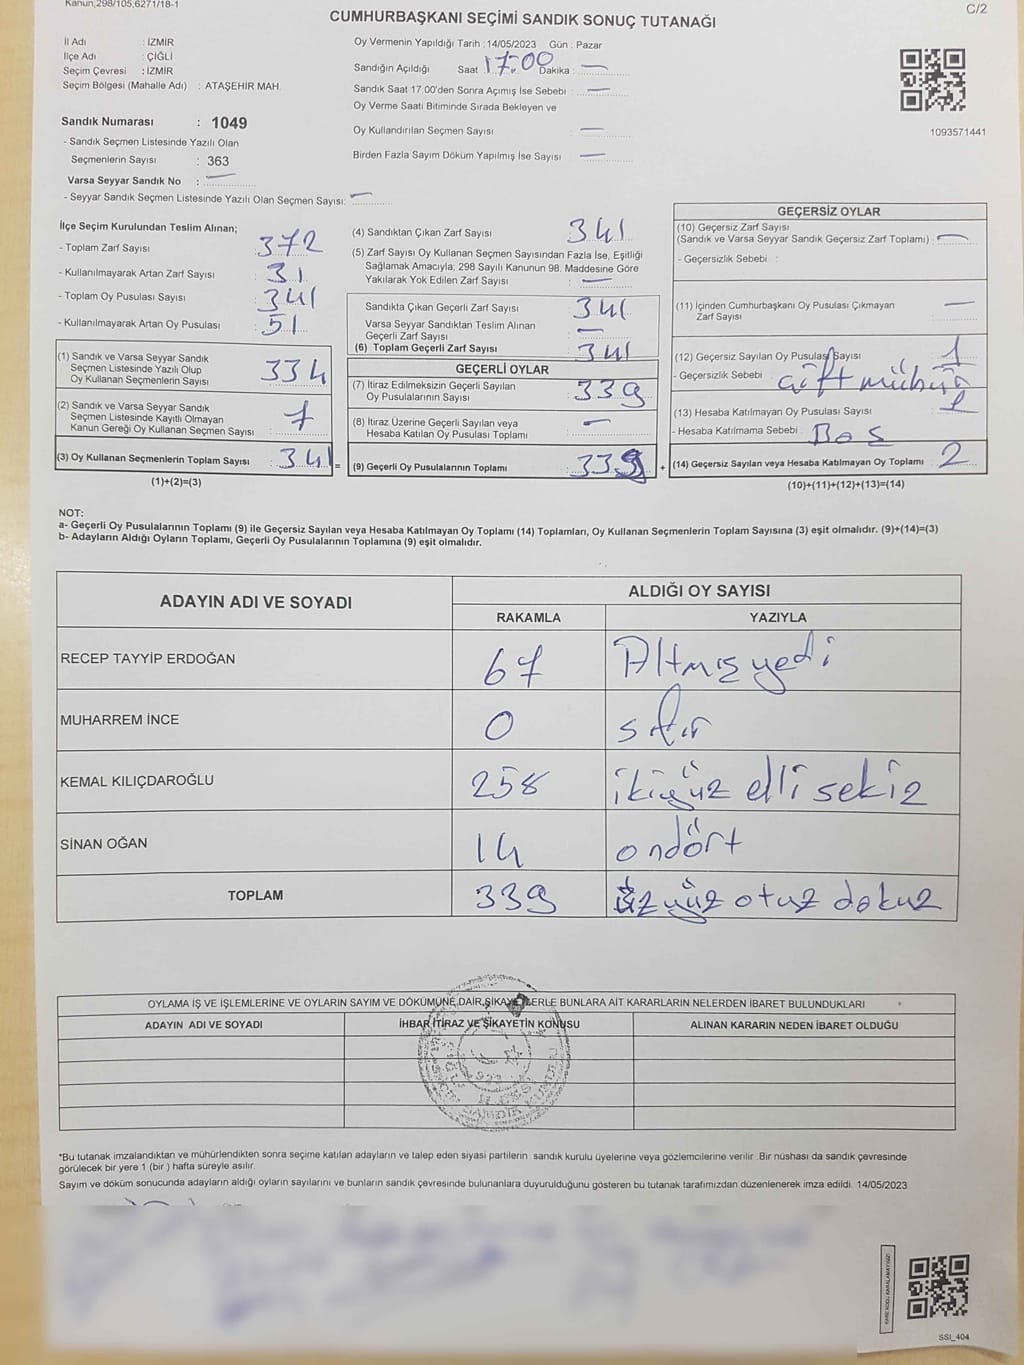 Kanun,298/105,6271/18-1
C/2
CUMHURBAŞKANI SEÇİMİ SANDIK SONUÇ TUTANAĞI
İl Adı : İZMİR
İlçe Adı : ÇİĞLİ
Seçim Çevresi : İZMİR
Seçim Bölgesi (Mahalle Adı) : ATAŞEHİR MAH.
Sandık Numarası : 1049
- Sandık Seçmen Listesinde Yazılı Olan
Seçmenlerin Sayısı : 363
Varsa Seyyar Sandık No : —
- Seyyar Sandık Seçmen Listesinde Yazılı Olan Seçmen Sayısı: —
Oy Vermenin Yapıldığı Tarih : 14/05/2023 Gün : Pazar
Sandığın Açıldığı Saat 17:00 Dakika : —
Sandık Saat 17.00'den Sonra Açımış İse Sebebi : —
Oy Verme Saati Bitiminde Sırada Bekleyen ve
Oy Kullandırılan Seçmen Sayısı : —
Birden Fazla Sayım Döküm Yapılmış İse Sayısı : —
1093571441
İlçe Seçim Kurulundan Teslim Alınan;
- Toplam Zarf Sayısı : 372
- Kullanılmayarak Artan Zarf Sayısı : 31
- Toplam Oy Pusulası Sayısı : 341
- Kullanılmayarak Artan Oy Pusulası : 51
(1) Sandık ve Varsa Seyyar Sandık
Seçmen Listesinde Yazılı Olup
Oy Kullanan Seçmenlerin Sayısı : 334
(2) Sandık ve Varsa Seyyar Sandık
Seçmen Listesinde Kayıtlı Olmayan
Kanun Gereği Oy Kullanan Seçmen Sayısı : 7
(3) Oy Kullanan Seçmenlerin Toplam Sayısı : 341 =
(1)+(2)=(3)
(4) Sandıktan Çıkan Zarf Sayısı : 341
(5) Zarf Sayısı Oy Kullanan Seçmen Sayısından Fazla İse, Eşitliği
Sağlamak Amacıyla; 298 Sayılı Kanunun 98. Maddesine Göre
Yakılarak Yok Edilen Zarf Sayısı : —
Sandıkta Çıkan Geçerli Zarf Sayısı : 341
Varsa Seyyar Sandıktan Teslim Alınan
Geçerli Zarf Sayısı : —
(6) Toplam Geçerli Zarf Sayısı : 341
GEÇERLİ OYLAR
(7) İtiraz Edilmeksizin Geçerli Sayılan
Oy Pusulalarının Sayısı : 339
(8) İtiraz Üzerine Geçerli Sayılan veya
Hesaba Katılan Oy Pusulası Toplamı : —
(9) Geçerli Oy Pusulalarının Toplamı : 339 +
GEÇERSİZ OYLAR
(10) Geçersiz Zarf Sayısı
(Sandık ve Varsa Seyyar Sandık Geçersiz Zarf Toplamı) : —
- Geçersizlik Sebebi :
(11) İçinden Cumhurbaşkanı Oy Pusulası Çıkmayan
Zarf Sayısı : —
(12) Geçersiz Sayılan Oy Pusulası Sayısı : 1
- Geçersizlik Sebebi : çift mühür
(13) Hesaba Katılmayan Oy Pusulası Sayısı : 1
- Hesaba Katılmama Sebebi : Boş
(14) Geçersiz Sayılan veya Hesaba Katılmayan Oy Toplamı : 2
(10)+(11)+(12)+(13)=(14)
NOT:
a- Geçerli Oy Pusulalarının Toplamı (9) ile Geçersiz Sayılan veya Hesaba Katılmayan Oy Toplamı (14) Toplamları, Oy Kullanan Seçmenlerin Toplam Sayısına (3) eşit olmalıdır. (9)+(14)=(3)
b- Adayların Aldığı Oyların Toplamı, Geçerli Oy Pusulalarının Toplamına (9) eşit olmalıdır.
ADAYIN ADI VE SOYADI
ALDIĞI OY SAYISI
RAKAMLA YAZIYLA
RECEP TAYYİP ERDOĞAN 67 Altmış yedi
MUHARREM İNCE 0 sıfır
KEMAL KILIÇDAROĞLU 258 ikiyüz elli sekiz
SİNAN OĞAN 14 ondört
TOPLAM 339 üzyüz otuz dokuz
OYLAMA İŞ VE İŞLEMLERİNE VE OYLARIN SAYIM VE DÖKÜMÜNE DAİR ŞİKAYETLERLE BUNLARA AİT KARARLARIN NELERDEN İBARET BULUNDUKLARI
ADAYIN ADI VE SOYADI
İHBAR İTİRAZ VE ŞİKAYETİN KONUSU
ALINAN KARARIN NEDEN İBARET OLDUĞU
*Bu tutanak imzalandıktan ve mühürlendikten sonra seçime katılan adayların ve talep eden siyasi partilerin sandık kurulu üyelerine veya gözlemcilerine verilir .Bir nüshası da sandık çevresinde
görülecek bir yere 1 (bir ) hafta süreyle asılır.
Sayım ve döküm sonucunda adayların aldığı oyların sayılarını ve bunların sandık çevresinde bulunanlara duyurulduğunu gösteren bu tutanak tarafımızdan düzenlenerek imza edildi. 14/05/2023
SSI_404